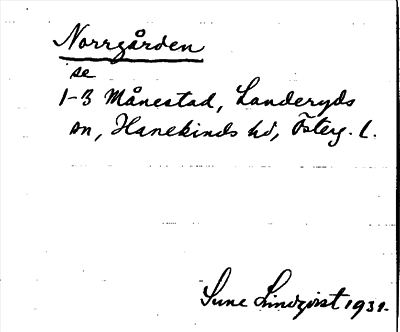 Norrgården
se
1-3 Månestad, Landeryds
sn, Hanekinds hd, Österg. l.
Sune Lindqvist 1931.